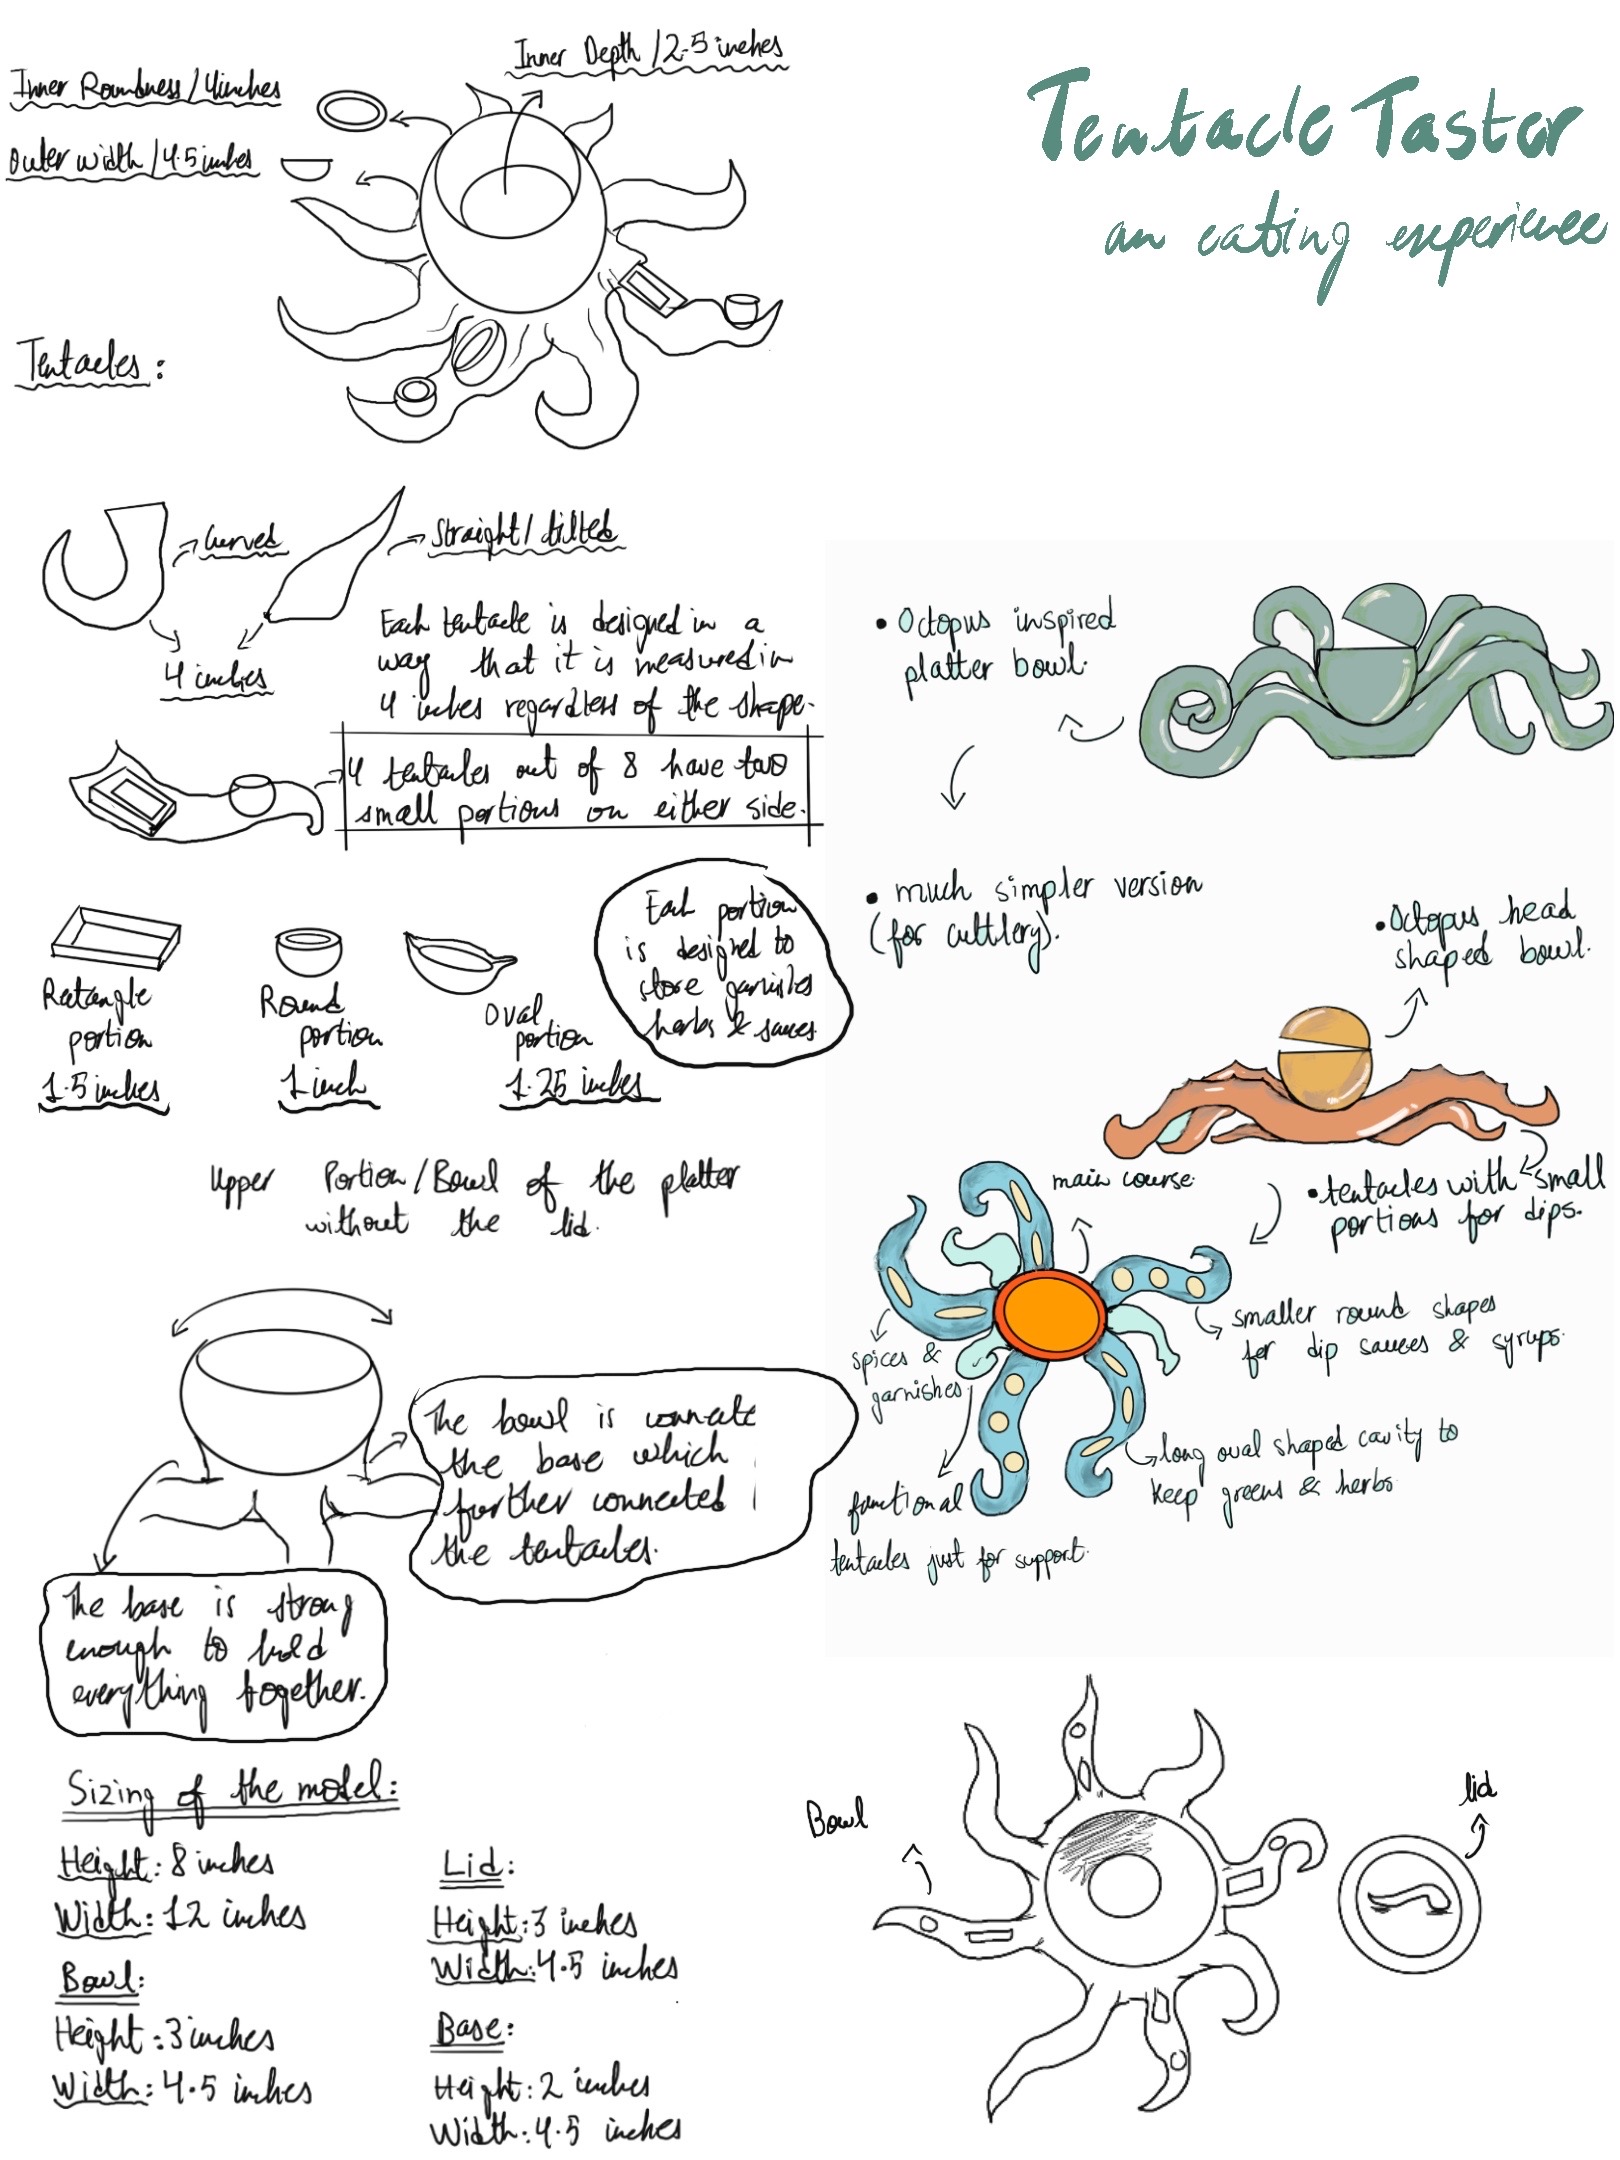 Tentacle Taster
an eating experience
Inner Depth / 2.5 inches
Inner Roundness / 4 inches
Outer width / 4.5 inches
Tentacles :
Curved
Straight / tilted
4 inches
Each tentacle is designed in a
way that it is measured in
4 inches regardless of the shape.
4 tentacles out of 8 have two
small portions on either side.
Rectangle
portion
1.5 inches
Round
portion
1 inch
Oval
portion
1.25 inches
Each portion
is designed to
store garnishes
herbs & sauces
Upper Portion / Bowl of the platter
without the lid.
The bowl is connecte
the base which
further connected
the tentacles.
The base is strong
enough to hold
everything together.
Sizing of the model:
Height: 8 inches
Width: 12 inches
Bowl:
Height: 3 inches
Width: 4.5 inches
Lid:
Height: 3 inches
Width: 4.5 inches
Base:
Height: 2 inches
Width: 4.5 inches
• Octopus inspired
platter bowl.
• much simpler version
(for cuttlery).
• Octopus head
shaped bowl.
• tentacles with small
portions for dips.
main course.
smaller round shapes
for dip sauces & syrups.
spices &
garnishes.
long oval shaped cavity to
keep greens & herbs
functional
tentacles just for support.
Bowl
lid